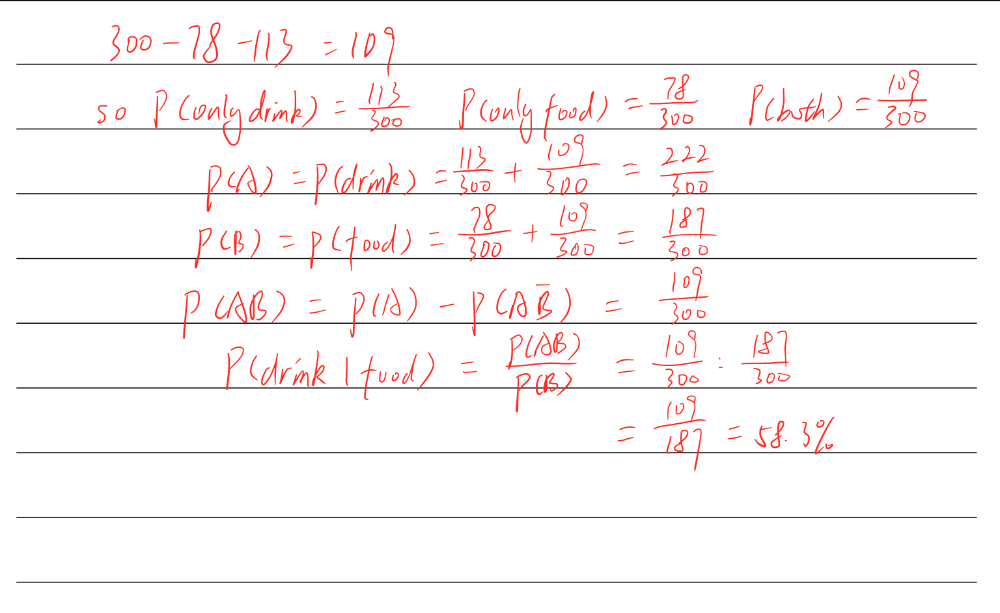 300 - 78 - 113 = 109
so P(only drink) = 113/300 P(only food) = 78/300 P(both) = 109/300
P(A) = P(drink) = 113/300 + 109/300 = 222/300
P(B) = P(food) = 78/300 + 109/300 = 187/300
P(AB) = P(A) - P(AB̄) = 109/300
P(drink | food) = P(AB)/P(B) = 109/300 : 187/300
= 109/187 = 58.3%